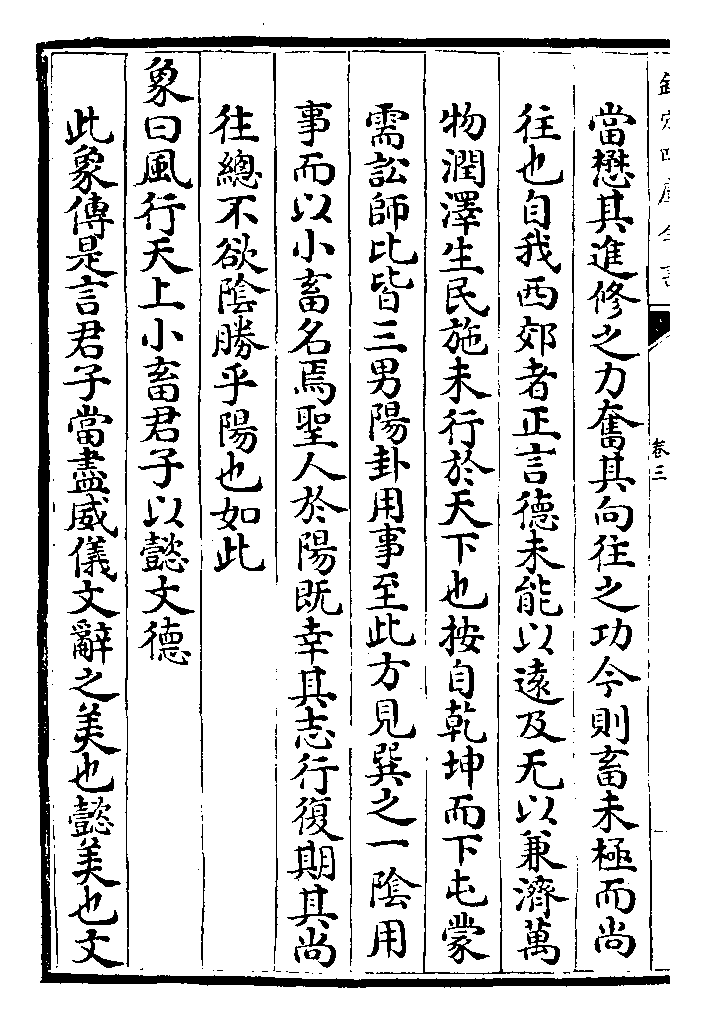 欽定四庫全書
卷三
當懋其進修之力奮其向往之功今則畜未極而尚
往也自我西郊者正言德未能以遠及无以兼濟萬
物潤澤生民施未行於天下也按自乾坤而下屯蒙
需訟師比皆三男陽卦用事至此方見巽之一陰用
事而以小畜名焉聖人於陽既幸其志行復期其尚
往總不欲陰勝乎陽也如此
象曰風行天上小畜君子以懿文德
此象傳是言君子當盡威儀文辭之美也懿美也文